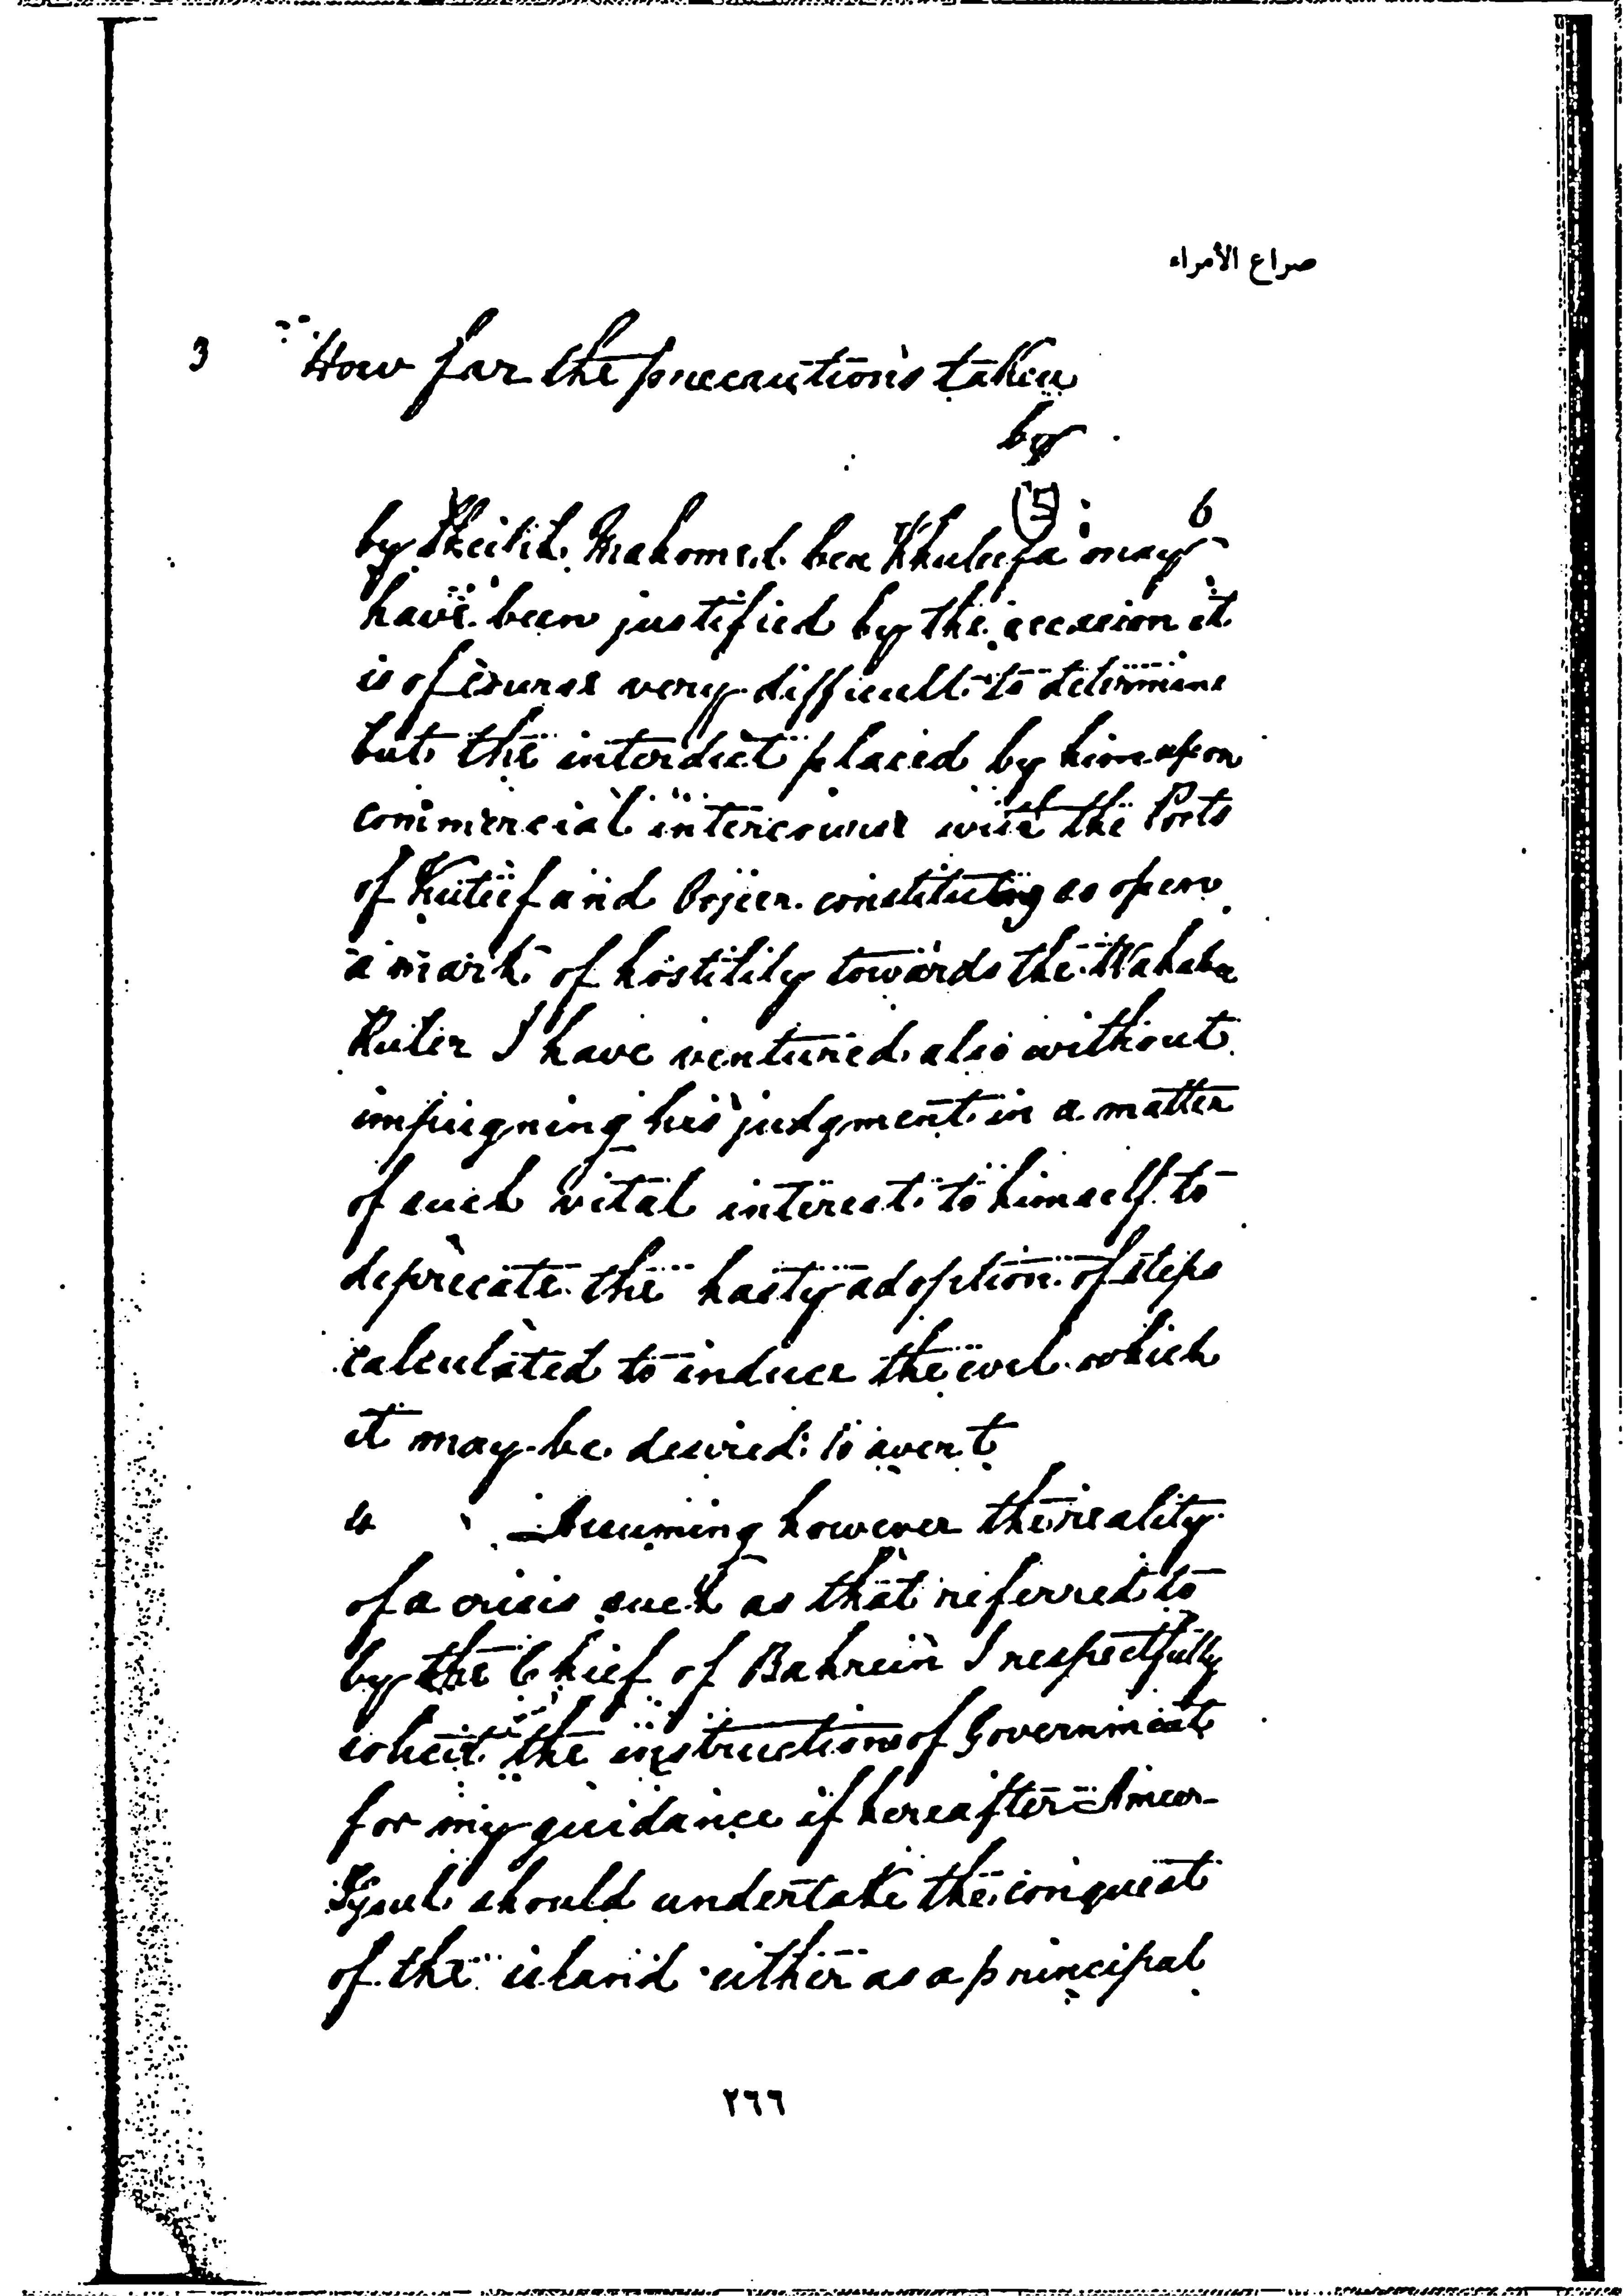 صراع الأمراء
3 How far the precautions taken
by
(5) 6
by Sheikh Mahomed ben Khuleefa may
have been justified by the occasion it
is of course very difficult to determine
but the interdict placed by him upon
commercial intercourse with the Ports
of Kuteef and Ojeer constituting so open
a mark of hostility towards the Wahabee
Ruler I have ventured also without
impugning his judgment in a matter
of such vital interest to himself to
deprecate the hasty adoption of steps
calculated to induce the evil which
it may be desired to avert
4 Assuming however the reality
of a crisis such as that referred to
by the Chief of Bahrein I respectfully
solicit the instructions of Government
for my guidance if hereafter Ameer
Fysul should undertake the conquest
of the island either as a principal
٢٦٦